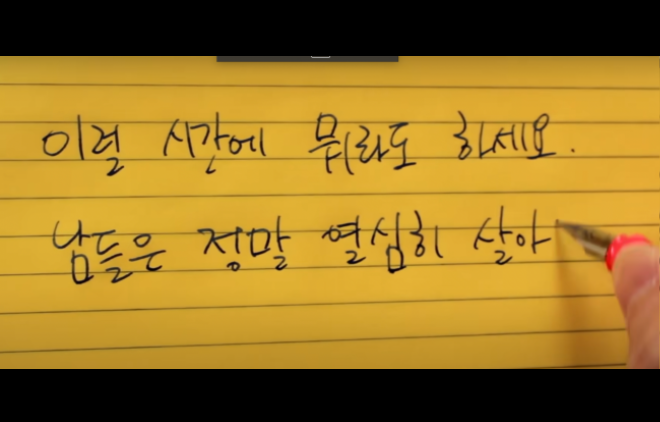 이럴 시간에 뭐라도 하세요.
남들은 정말 열심히 살아